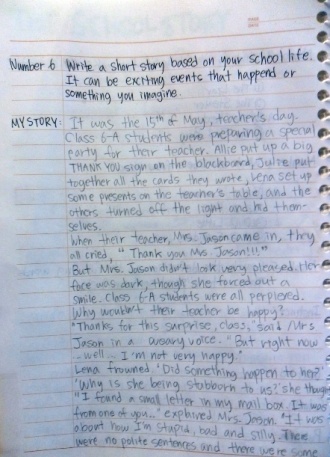 Number 6 Write a short story based on your school life.
It can be exciting events that happend or
something you imagine.
MY STORY: It was the 15th of May, teacher's day.
Class 6-A students were preparing a special
party for their teacher. Alice put up a big
THANK YOU sign on the blackboard, Julie put
together all the cards they wrote, Lena set up
some presents on the teacher's table, and the
others turned off the light and hid them-
selves.
When their teacher, Mrs. Jason came in, they
all cried, "Thank you Mrs. Jason!!!"
But Mrs. Jason didn't look very pleased. Her
face was dark, though she forced out a
smile. Class 6-A students were all perplexed.
Why wouldn't their teacher be happy?
"Thanks for this surprise, class," said Mrs
Jason in a weary voice. "But right now
-well- I'm not very happy."
Lena frowned. 'Did something happen to her?'
'Why is she being stubborn to us?' she thought
"I found a small letter in my mail box. It was
from one of you.." explained Mrs. Jason. "It was
about how I'm stupid, bad and silly. There
were no polite sentences and there were some